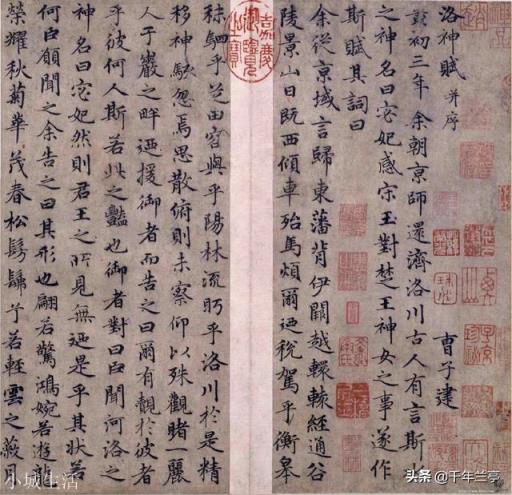 洛神賦 并序
曹子建
黃初三年余朝京師還濟洛川古人有言斯
之神名曰宓妃感宋玉對楚王神女之事遂作
斯賦其詞曰
余從京域言歸東藩背伊闕越轘轅經通谷
陵景山日既西傾車殆馬煩爾迺稅駕乎衡皋
秣駟乎芝田容與乎陽林流眄乎洛川於是精
移神駭忽焉思散俯則未察仰以殊觀睹一麗
人于巖之畔迺援御者而告之曰爾有覿於彼者
乎彼何人斯若此之豔也御者對曰臣聞河洛之
神名曰宓妃然則君王之所見無迺是乎其狀若
何臣願聞之余告之曰其形也翩若驚鴻婉若遊龍
榮耀秋菊華茂春松髣髴兮若輕雲之蔽月
嘉慶御覽之寶
小城生活
头条 @千年兰亭